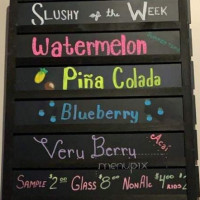 Slushy of the Week
Watermelon
Piña Colada
Blueberry
Very Berry Acai
menupix
Sample $2.00 Glass $8.00 Non Alc $4.00
Kids